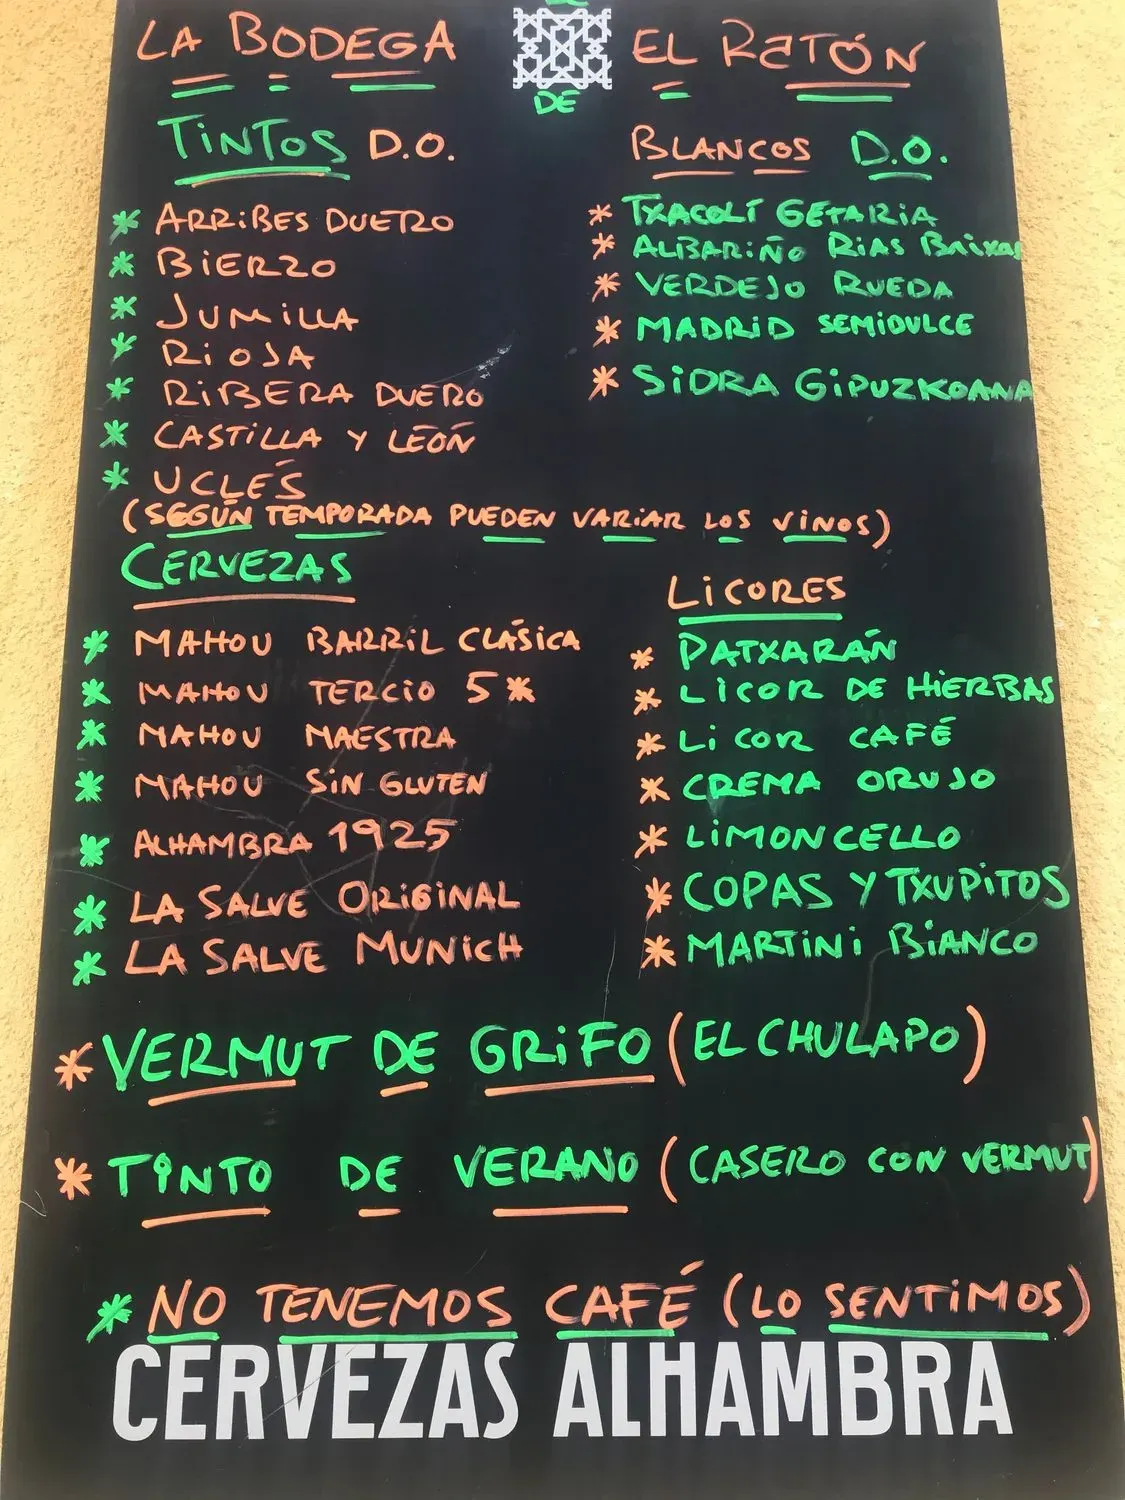 LA BODEGA DE EL RATÓN
DE
TINTOS D.O.
* ARRIBES DUERO
* BIERZO
* JUMILLA
* RIOJA
* RIBERA DUERO
* CASTILLA Y LEÓN
* UCLÉS
BLANCOS D.O.
* TXACOLÍ GETARIA
* ALBARIÑO RIAS BAIXAS
* VERDEJO RUEDA
* MADRID SEMIDULCE
* SIDRA GIPUZKOANA
(SEGÚN TEMPORADA PUEDEN VARIAR LOS VINOS)
CERVEZAS
* MAHOU BARRIL CLÁSICA
* MAHOU TERCIO 5*
* MAHOU MAESTRA
* MAHOU SIN GLUTEN
* ALHAMBRA 1925
* LA SALVE ORIGINAL
* LA SALVE MUNICH
LICORES
* PATXARÁN
* LICOR DE HIERBAS
* LICOR CAFÉ
* CREMA ORUJO
* LIMONCELLO
* COPAS Y TXUPITOS
* MARTINI BIANCO
* VERMUT DE GRIFO (EL CHULAPO)
* TINTO DE VERANO (CASERO CON VERMUT)
* NO TENEMOS CAFÉ (LO SENTIMOS)
CERVEZAS ALHAMBRA